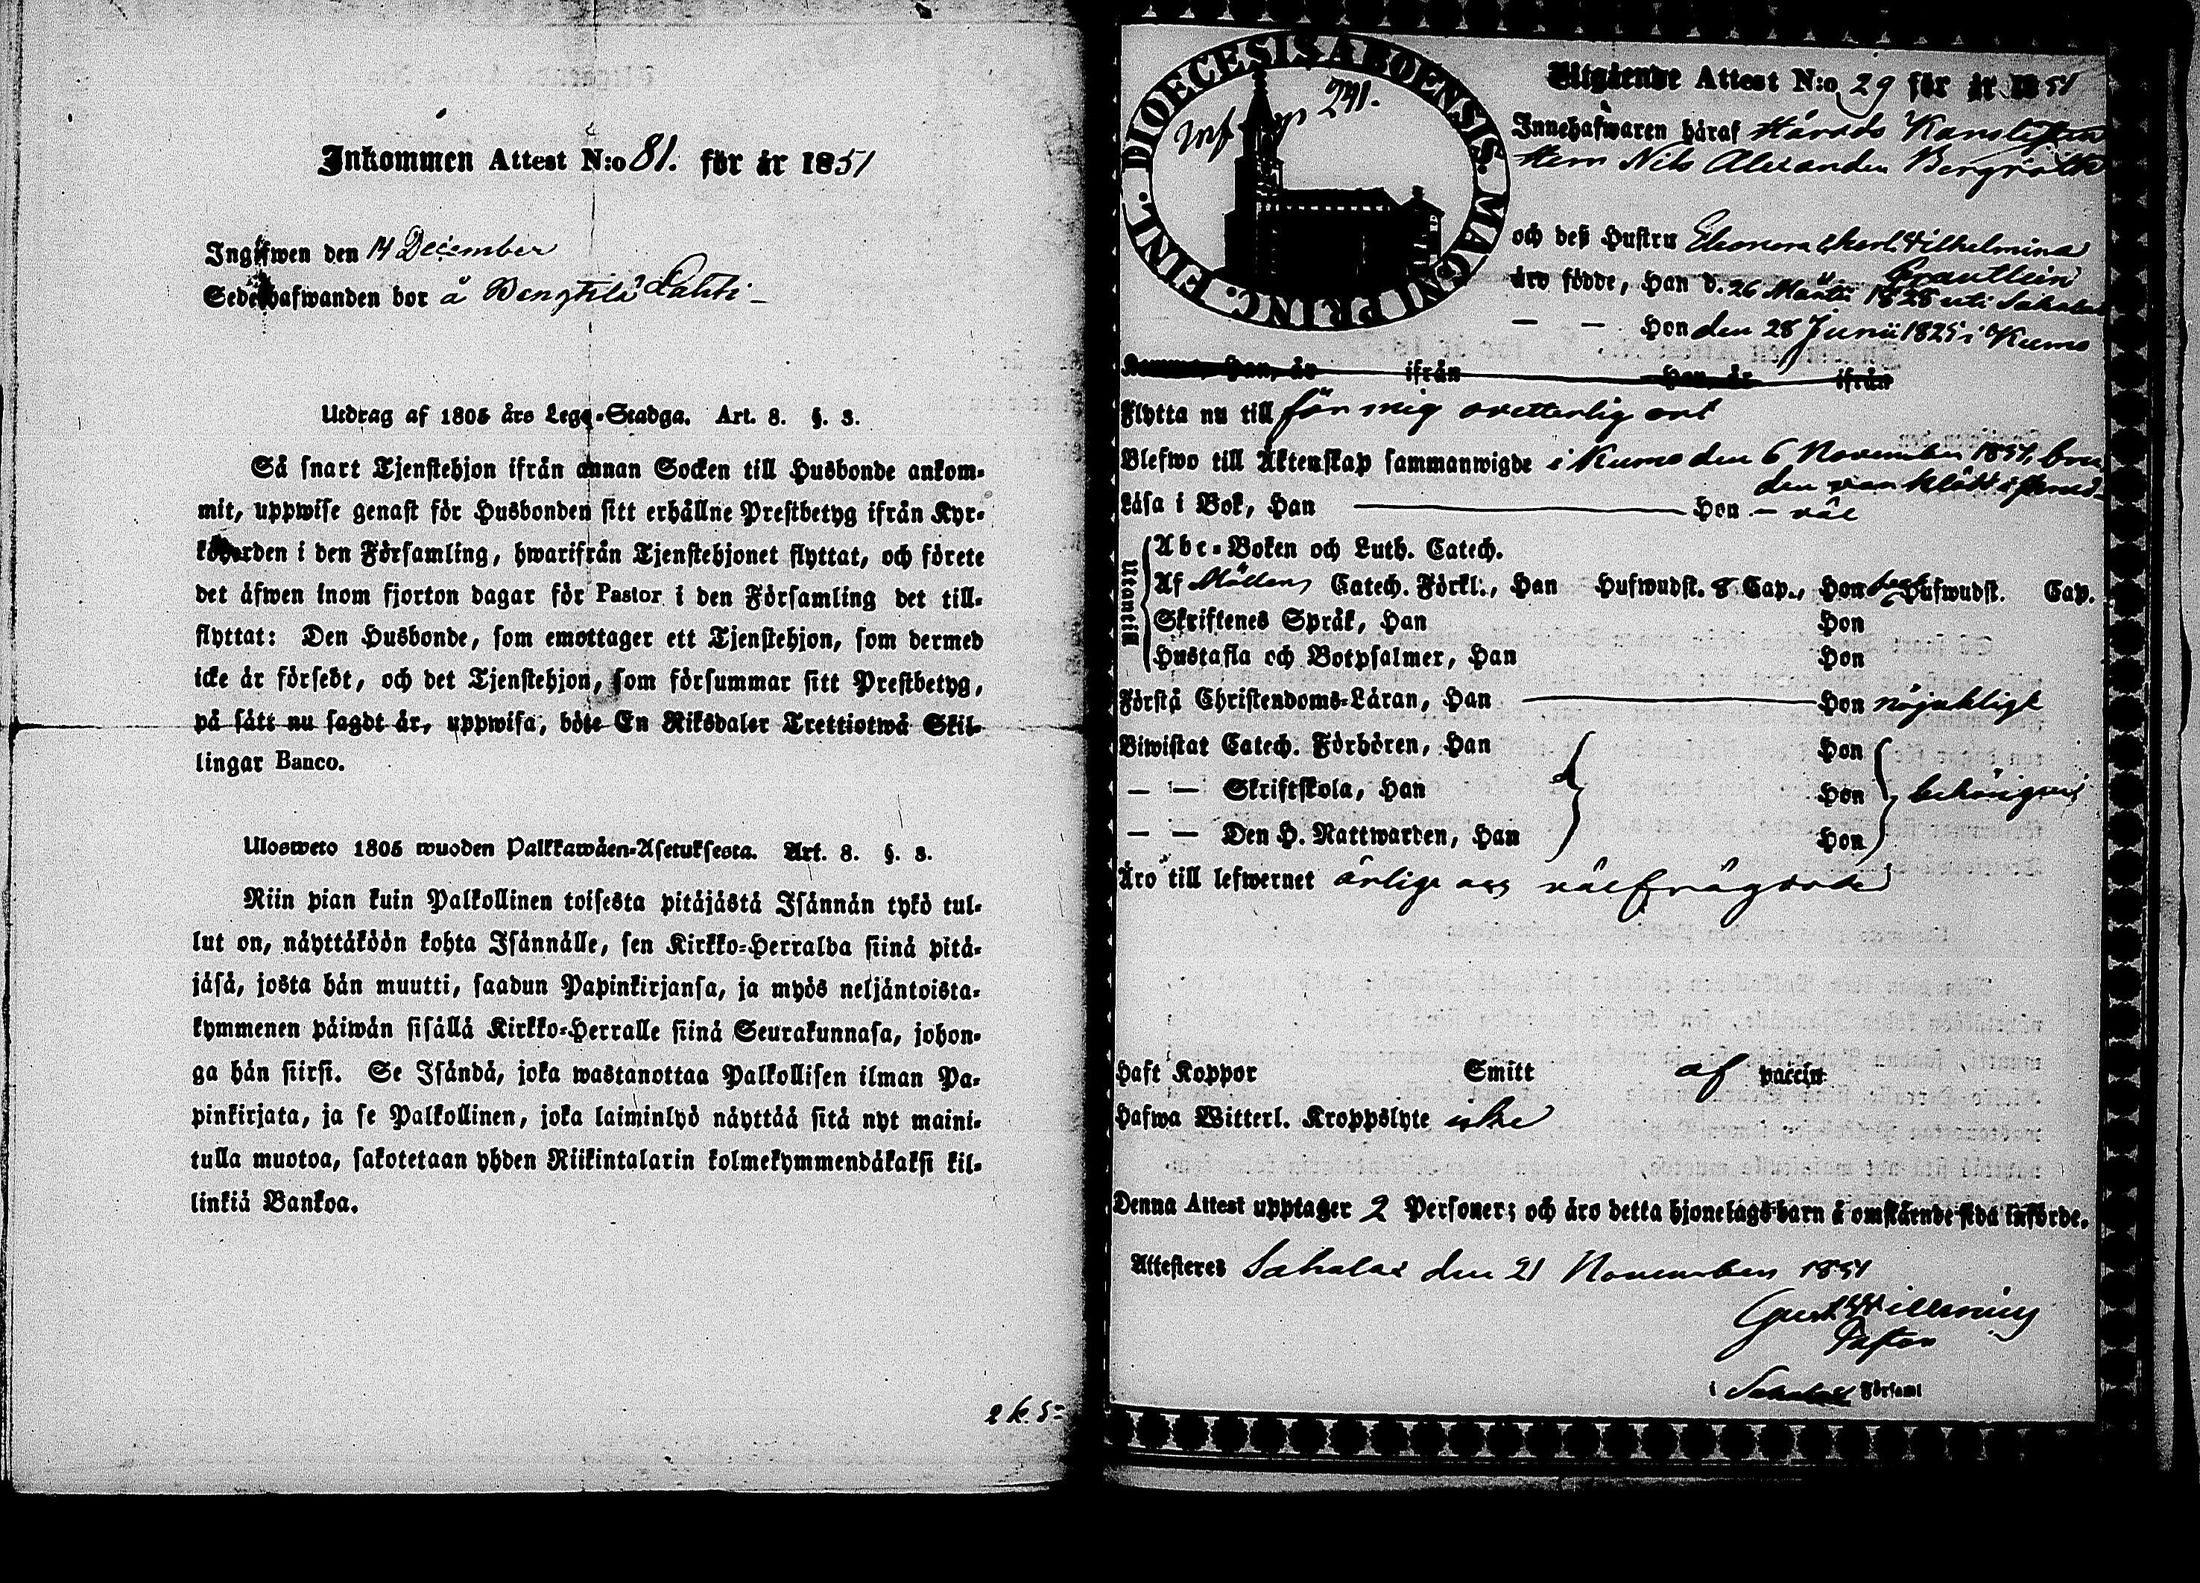 Inkommen Attest N:o 81. för år 1851
Ingifwen den 14 December
Sedelhafwanden bor å Bengtilä Lahti –
Utdrag af 1805 års Lego-Stadga. Art. 8. §. 3.
Så snart Tjenstehjon ifrån annan Socken till Husbonde ankom-
mit, uppwise genast för Husbonden sitt erhållne Prestbetyg ifrån Kyr-
koherden i den Församling, hwarifrån Tjenstehjonet flyttat, och förete
det äfwen inom fjorton dagar för Pastor i den Församling det till-
flyttat: Den Husbonde, som emottager ett Tjenstehjon, som dermed
icke är försedt, och det Tjenstehjon, som försummar sitt Prestbetyg,
på sätt nu sagdt är, uppwisa, böte En Riksdaler Trettiotwå Skil-
lingar Banco.
Ulosweto 1805 wuoden Palkkawäen-Asetuksesta. Art. 8. §. 3.
Niin pian kuin Palkollinen toisesta pitäjästä Isännän tykö tul-
lut on, näyttäköön kohta Isännälle, sen Kirkko-Herralda siinä pitä-
jäsä, josta hän muutti, saadun Papinkirjansa, ja myös neljäntoista-
kymmenen päiwän sisällä Kirkko-Herralle siinä Seurakunnasa, johon-
ga hän siirsi. Se Isändä, joka wastanottaa Palkollisen ilman Pa-
pinkirjata, ja se Palkollinen, joka laiminlyö näyttää sitä nyt maini-
tulla muotoa, sakotetaan yhden Riikintalarin kolmekymmendäkaksi kil-
linkiä Bankoa.
2 k. S:
DIOECESIS ABOENSIS. MAGNI PRINC. FINL.
Inf p 241.
Utgående Attest N:o 29 för år 1851
Innehafwaren häraf Härads Kanslisten
Herr Nils Alexander Bergroth
och deß Hustru Eleonora Charl Vilhelmina
Grautlein
äro födde, Han d. 26 Martii 1828 uti Sahalax
— — Hon den 28 Junii 1825 i Kumo
Komma, Han, år ifrån Hon, år ifrån
Flytta nu till för mig ovetterlig ort
Blefwo till Äktenskap sammanwigde i Kumo den 6 November 1851, bru
den var klädd i
Läsa i Bok, Han — Hon – väl
Utantill
Abc-Boken och Luth. Catech.
Af Möllers Catech. Förkl., Han Hufwudst. 8 Cap., Hon Hufwudst. Cap.
Skriftenes Språk, Han Hon
Hustafla och Botpsalmer, Han Hon
Förstå Christendoms-Läran, Han — Hon nöjaktligt
Biwistat Catech. Förhören, Han Hon
— — Skriftskola, Han Hon behörigen
— — Den H. Nattwarden, Han Hon
Äro till lefwernet ärliga och välfrägdade
Haft Koppor Smitt af vaccin
Hafwa Witterl. Kroppslyte icke
Denna Attest upptager 2 Personer; och äro detta hjonelags barn å omstående sida införde.
Attesteres Sahalax den 21 November 1851
Gust Willenius
Pastor
i Sahalax Församl